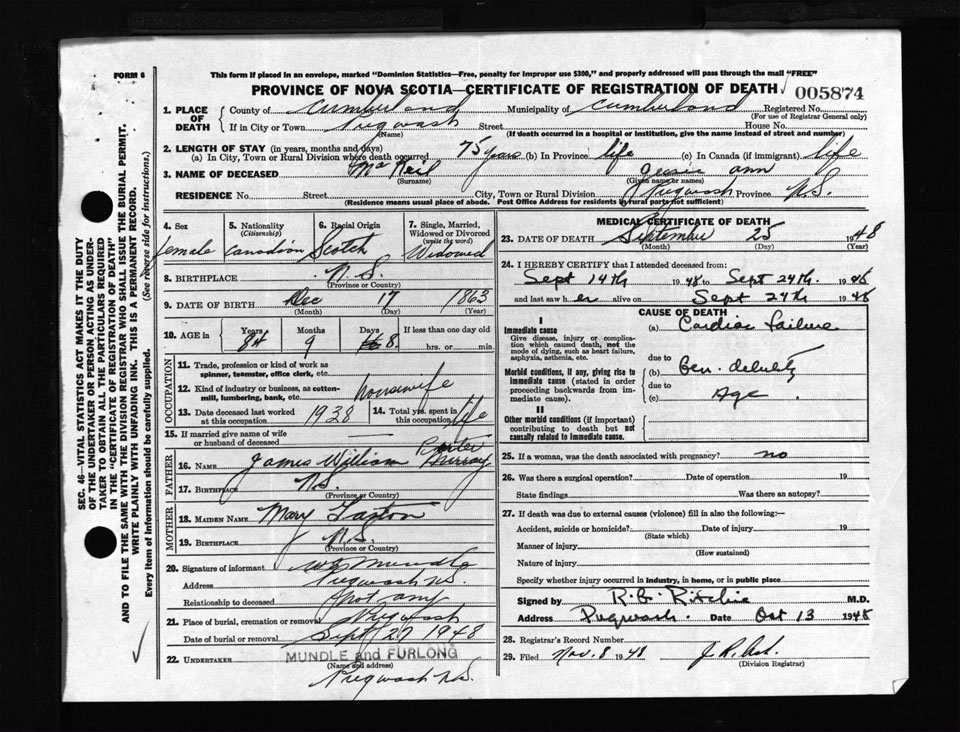 FORM 6
This form if placed in an envelope, marked "Dominion Statistics—Free, penalty for improper use $300," and properly addressed will pass through the mail "FREE"
PROVINCE OF NOVA SCOTIA—CERTIFICATE OF REGISTRATION OF DEATH 005874
1. PLACE OF DEATH County of Cumberland Municipality of Cumberland Registered No.
(For use of Registrar General only)
If in City or Town Pugwash Street House No.
(Name) (If death occurred in a hospital or institution, give the name instead of street and number)
2. LENGTH OF STAY (in years, months and days)
(a) In City, Town or Rural Division where death occurred 75 years (b) In Province life (c) In Canada (if immigrant) life
3. NAME OF DECEASED McNeil Ann
(Surname) (Given name or names)
RESIDENCE No. Street City, Town or Rural Division Pugwash Province N.S.
(Residence means usual place of abode. Post Office Address for residents in rural parts not sufficient)
SEC. 46—VITAL STATISTICS ACT MAKES IT THE DUTY
OF THE UNDERTAKER OR PERSON ACTING AS UNDER-
TAKER TO OBTAIN ALL THE PARTICULARS REQUIRED
IN THE "CERTIFICATE OF REGISTRATION OF DEATH"
AND TO FILE THE SAME WITH THE DIVISION REGISTRAR WHO SHALL ISSUE THE BURIAL PERMIT.
WRITE PLAINLY WITH UNFADING INK. THIS IS A PERMANENT RECORD.
Every item of information should be carefully supplied. (See reverse side for instructions.)
4. Sex 5. Nationality (Citizenship) 6. Racial Origin 7. Single, Married, Widowed or Divorced (write the word)
female Canadian Scotch Widowed
8. BIRTHPLACE N.S.
(Province or Country)
9. DATE OF BIRTH Dec 17 1863
(Month) (Day) (Year)
10. AGE in Years Months Days If less than one day old
84 9 8 hrs. or min.
OCCUPATION
11. Trade, profession or kind of work as spinner, teamster, office clerk, etc.
12. Kind of industry or business, as cotton-mill, lumbering, bank, etc. housewife
13. Date deceased last worked at this occupation 1938 14. Total yrs. spent in this occupation life
15. If married give name of wife or husband of deceased
FATHER
16. Name James William Murray
17. Birthplace N.S.
(Province or Country)
MOTHER
18. MAIDEN NAME Mary
19. BIRTHPLACE N.S.
(Province or Country)
20. Signature of informant Mundle
Address Pugwash N.S.
Relationship to deceased not any
21. Place of burial, cremation or removal Pugwash
Date of burial or removal Sept 27 1948
22. UNDERTAKER MUNDLE and FURLONG
(Name and address)
Pugwash N.S.
MEDICAL CERTIFICATE OF DEATH
23. DATE OF DEATH September 25 1948
(Month) (Day)
24. I HEREBY CERTIFY that I attended deceased from:
Sept 14th 1948 to Sept 24th 1948
and last saw her alive on Sept 24th 1948
CAUSE OF DEATH
I
Immediate cause (a) Cardiac failure
Give disease, injury or complication which caused death, not the mode of dying, such as heart failure, asphyxia, asthenia, etc.
due to
Morbid conditions, if any, giving rise to immediate cause (stated in order proceeding backwards from immediate cause). (b) Gen. debility
due to
(c) Age
II
Other morbid conditions (if important) contributing to death but not causally related to immediate cause.
25. If a woman, was the death associated with pregnancy? no
26. Was there a surgical operation? Date of operation 19
State findings Was there an autopsy?
27. If death was due to external causes (violence) fill in also the following:—
Accident, suicide or homicide? Date of injury 19
(State which)
Manner of injury
(How sustained)
Nature of injury
Specify whether injury occurred in industry, in home, or in public place
Signed by R.G. Ritchie M.D.
Address Pugwash. Date Oct 13 1948
28. Registrar's Record Number
29. Filed Nov. 8 1948 J.R. Ash.
(Division Registrar)